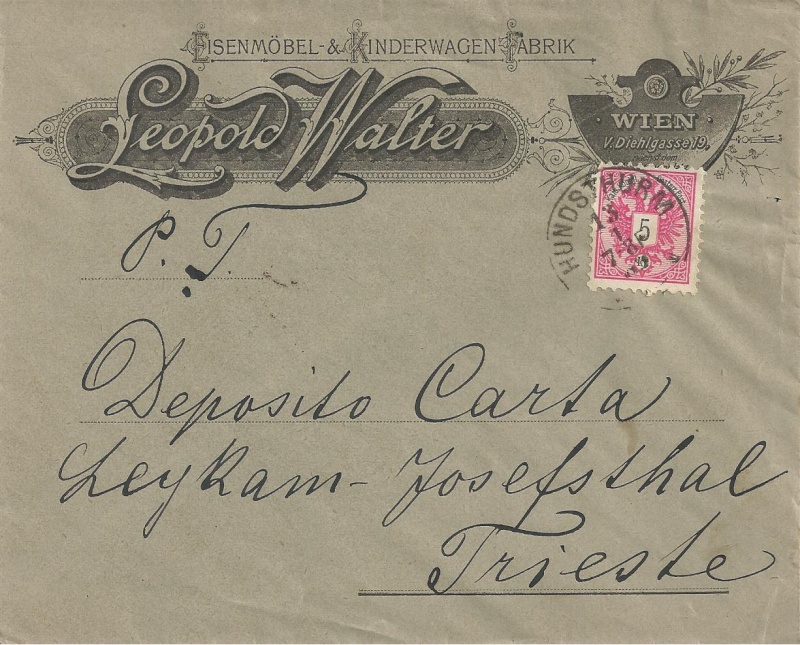 EISENMÖBEL- & KINDERWAGEN-FABRIK
Leopold Walter
WIEN
V. Diehlgasse 19.
HUNDSTHURM
5
P. T.
Deposito Carta
Leykam-Josefsthal
Trieste